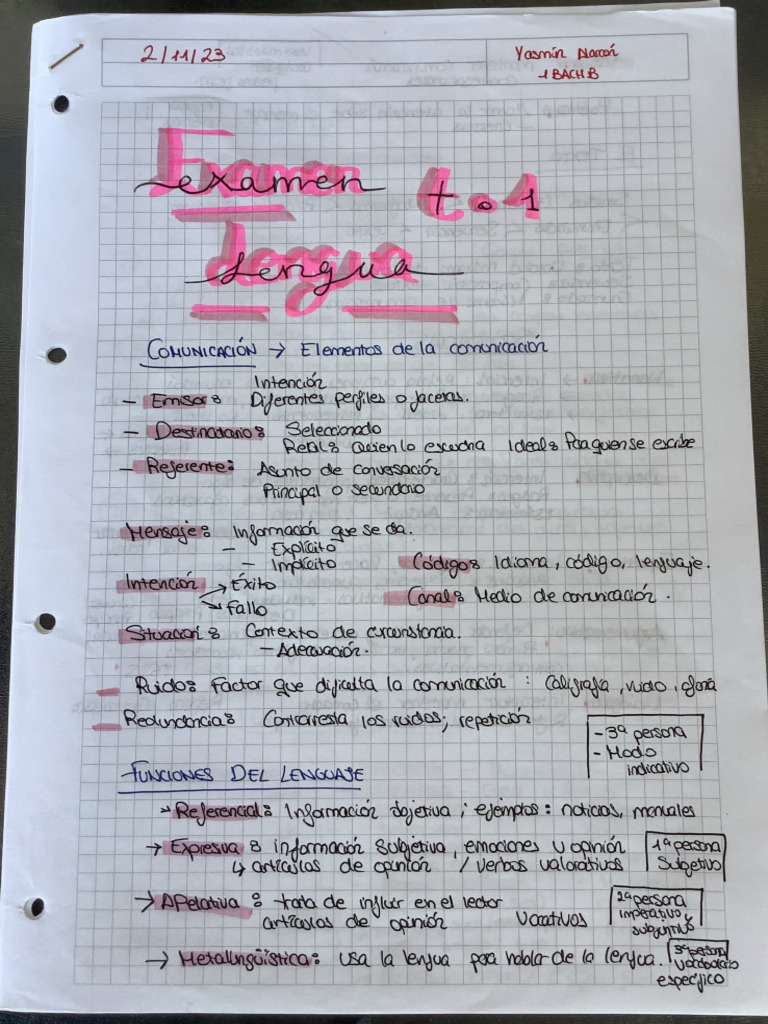 2/11/23
Yasmín Alarcón
1 BACH B
Examen t.1
Lengua
COMUNICACIÓN → Elementos de la comunicación
Intención
- Emisor: Diferentes perfiles o facetas.
- Destinatario: Seleccionado
Real: Quien lo escucha Ideal: Para quien se escribe
- Referente: Asunto de conversación
Principal o secundario
Mensaje: Información que se da.
- Explícito
- Implícito
Código: Idioma, código, lenguaje.
Intención → Éxito
→ Fallo
Canal: Medio de comunicación.
Situación: Contexto de circunstancia.
- Adecuación.
- Ruido: Factor que dificulta la comunicación: Caligrafía, ruido, afonía
- Redundancia: Contrarresta los ruidos; repetición
- 3ª persona
- Modo
indicativo
FUNCIONES DEL LENGUAJE
→ Referencial: Información objetiva; ejemplos: noticias, manuales
→ Expresiva: información subjetiva, emociones u opinión
↳ artículos de opinión / verbos valorativos
1ª persona
Subjetivo
→ Apelativa: trata de influir en el lector
artículos de opinión vocativos
2ª persona
imperativo y
subjuntivo
→ Metalingüística: usa la lengua para hablar de la lengua.
3ª persona
vocabulario
específico